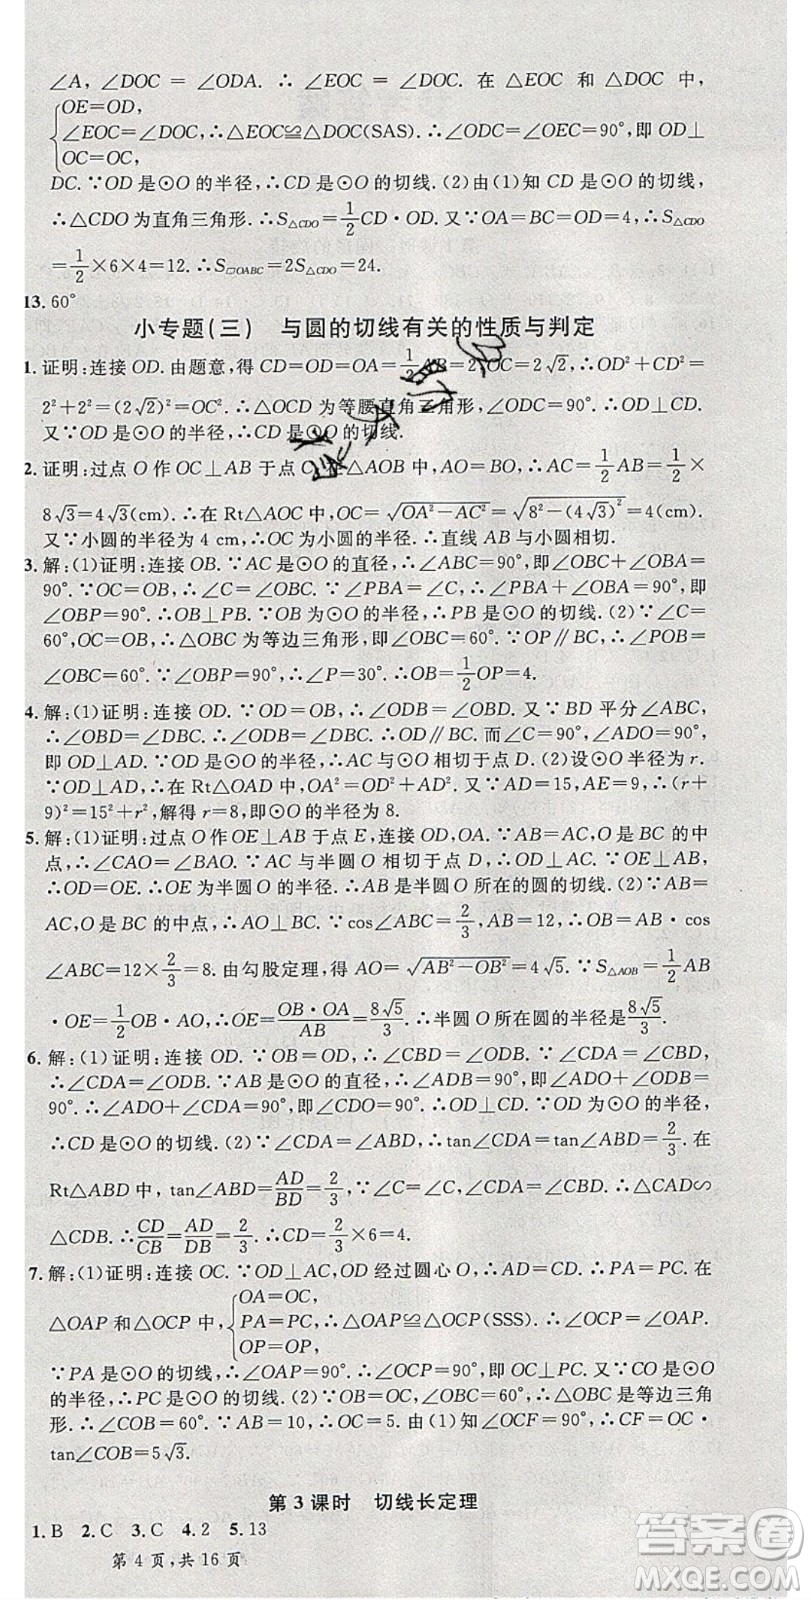 ∠A,∠DOC = ∠ODA.∴∠EOC = ∠DOC. 在△EOC 和△DOC 中,
OE=OD,
∠EOC=∠DOC,∴△EOC≌△DOC(SAS).∴∠ODC=∠OEC=90°,即OD⊥
OC=OC,
DC.∵OD是⊙O的半径,∴CD是⊙O的切线.(2)由(1)知CD是⊙O的切线,
∴△CDO为直角三角形.∴S△CDO=1/2CD·OD.又∵OA=BC=OD=4,∴S△CDO=
1/2×6×4=12.∴S▱OABC=2S△CDO=24.
13.60°
小专题(三) 与圆的切线有关的性质与判定
1.证明:连接OD.由题意,得CD=OD=OA=1/2AB=2,OC=2√2,∴OD²+CD²=
2²+2²=(2√2)²=OC².∴△OCD为等腰直角三角形,∠ODC=90°.∴OD⊥CD.
又∵OD是⊙O的半径,∴CD是⊙O的切线.
2.证明:过点O作OC⊥AB于点C.在△AOB中,AO=BO,∴AC=1/2AB=1/2×
8√3=4√3(cm).∴在Rt△AOC中,OC=√(OA²-AC²)=√(8²-(4√3)²)=4(cm).
又∵小圆的半径为4 cm,∴OC是小圆的半径.∴直线AB与小圆相切.
3.解:(1)证明:连接OB.∵AC是⊙O的直径,∴∠ABC=90°,即∠OBC+∠OBA=
90°.∵OC=OB,∴∠C=∠OBC.∵∠PBA=∠C,∴∠PBA+∠OBA=90°,即
∠OBP=90°.∴OB⊥PB.∵OB是⊙O的半径,∴PB是⊙O的切线.(2)∵∠C=
60°,OC=OB,∴△OBC为等边三角形,即∠OBC=60°.∵OP∥BC,∴∠POB=
∠OBC=60°.∵∠OBP=90°,∴∠P=30°.∴OB=1/2OP=4.
4.解:(1)证明:连接OD.∵OD=OB,∴∠OBD=∠ODB.又∵BD平分∠ABC,∴
∠OBD=∠DBC.∴∠ODB=∠DBC.∴OD∥BC.∵∠C=90°,∴∠ADO=90°,
即OD⊥AD.∵OD是⊙O的半径,∴AC与⊙O相切于点D.(2)设⊙O半径为r.
∵OD⊥AD,∴在Rt△OAD中,OA²=AD²+OD².又∵AD=15,AE=9,∴(r+
9)²=15²+r²,解得r=8,即⊙O的半径为8.
5.解:(1)证明:过点O作OE⊥AB于点E,连接OD,OA.∵AB=AC,O是BC的中
点,∴∠CAO=∠BAO.∵AC与半圆O相切于点D,∴OD⊥AC.∵OE⊥AB,
∴OD=OE.∴OE是半圆O的半径.∴AB是半圆O所在的圆的切线.(2)∵AB=
AC,O是BC的中点,∴AO⊥BC.∵cos∠ABC=2/3,AB=12,∴OB=AB·cos
∠ABC=12×2/3=8.由勾股定理,得AO=√(AB²-OB²)=4√5.∵S△AOB=1/2AB
·OE=1/2OB·AO,∴OE=OB·OA/AB=8√5/3.∴半圆O所在圆的半径是8√5/3.
6.解:(1)证明:连接OD.∵OB=OD,∴∠OBD=∠ODB.∵∠CDA=∠CBD,
∴∠CDA=∠ODB.∵AB是⊙O的直径,∴∠ADB=90°,即∠ADO+∠ODB=
90°.∴∠ADO+∠CDA=90°,即∠CDO=90°.∴OD⊥CD.∵OD是⊙O的半径,
∴CD是⊙O的切线.(2)∵∠CDA=∠ABD,∴tan∠CDA=tan∠ABD=2/3.在
Rt△ABD中,tan∠ABD=AD/BD=2/3.∵∠C=∠C,∠CDA=∠CBD,∴△CDA∽
△CDB.∴CD/CB=AD/DB=2/3.∴CD=2/3×6=4.
7.解:(1)证明:连接OC.∵OD⊥AC,OD经过圆心O,∴AD=CD.∴PA=PC.在
OA=OC,
△OAP和△OCP中,PA=PC,∴△OAP≌△OCP(SSS).∴∠OCP=∠OAP.
OP=OP,
∵PA是⊙O的切线,∴∠OAP=90°.∴∠OCP=90°,即OC⊥PC.又∵CO是⊙O
的半径,∴PC是⊙O的切线.(2)∵OB=OC,∠OBC=60°,∴△OBC是等边三角
形.∴∠COB=60°.∵AB=10,∴OC=5.由(1)知∠OCF=90°,∴CF=OC·
tan∠COB=5√3.
第3课时 切线长定理
1.B 2.C 3.C 4.2 5.13
第4页,共16页
答案圈
MXQE.COM